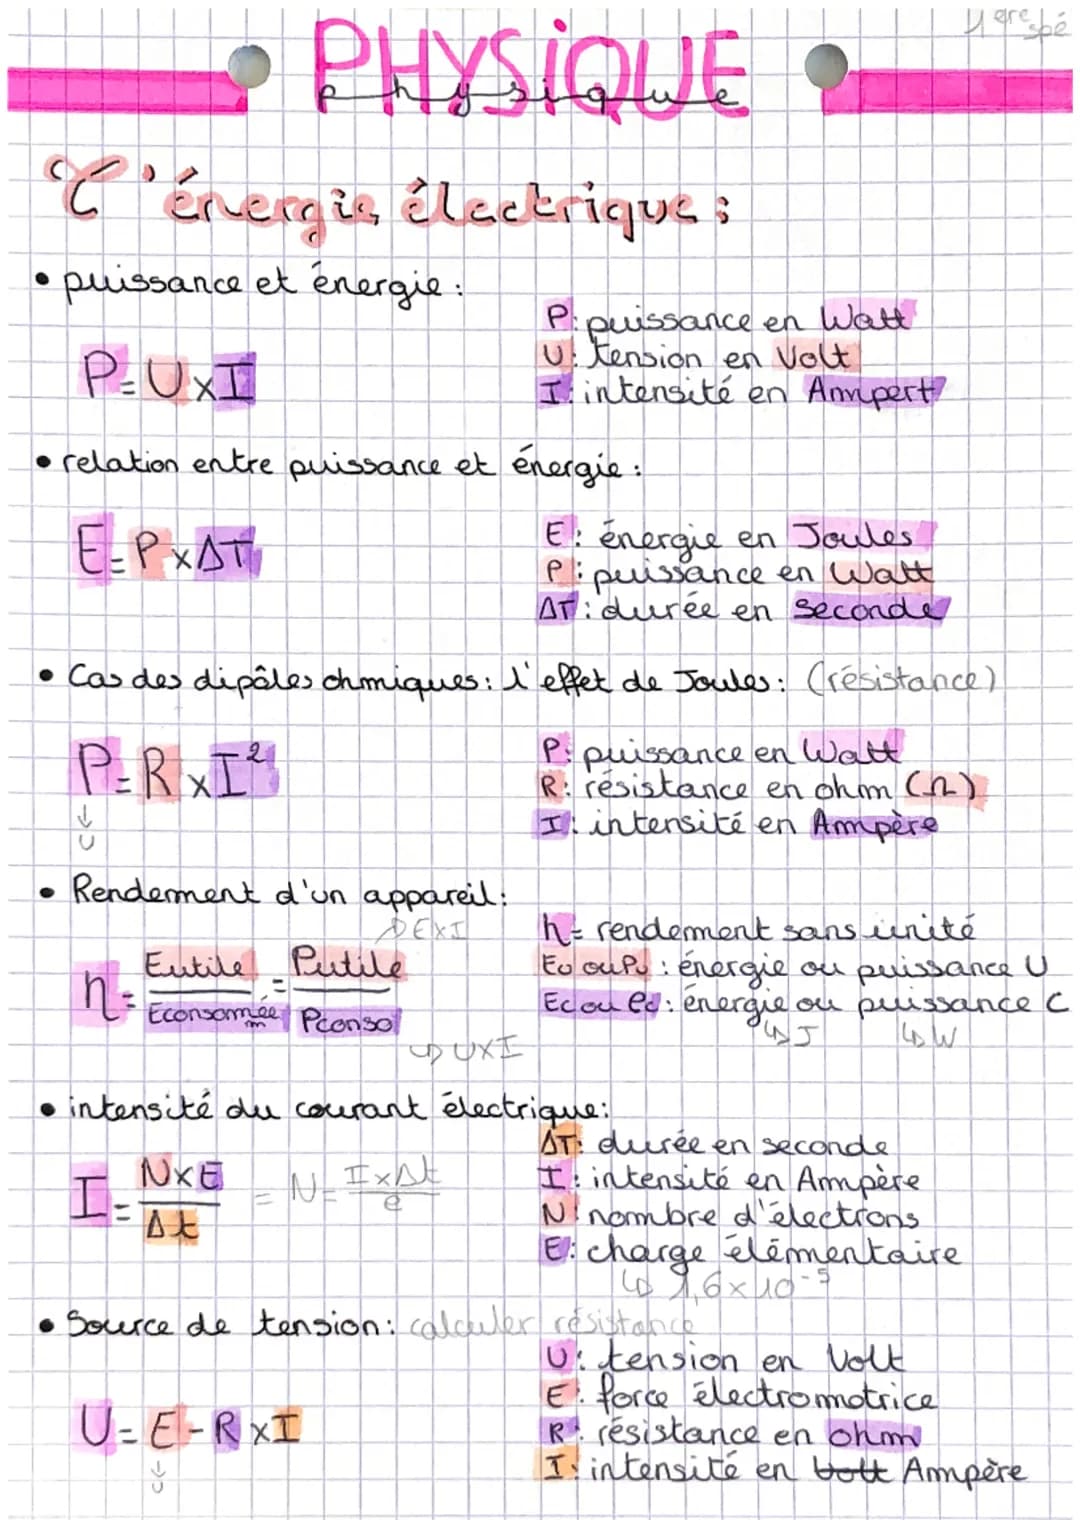 1ere spé
PHYSIQUE
physique
L'énergie électrique :
• puissance et énergie :
P = U x I
P : puissance en Watt
U : tension en Volt
I : intensité en Ampert
• relation entre puissance et énergie :
E = P x ΔT
E : énergie en Joules
P : puissance en Watt
ΔT : durée en seconde
• Cas des dipôles ohmiques : l'effet de Joules : (résistance)
P = R x I²
↳ U
P : puissance en Watt
R : résistance en ohm (Ω)
I : intensité en Ampère
• Rendement d'un appareil :
↱ E x I
η = Eutile / Econsommée = Putile / Pconso
↳ U x I
h = rendement sans unité
Eu ou Pu : énergie ou puissance U
Ec ou Pc : énergie ou puissance C
↳ J ↳ W
• intensité du courant électrique :
I = N x E / Δt = N = I x Δt / e
ΔT : durée en seconde
I : intensité en Ampère
N : nombre d'électrons
E : charge élémentaire
↳ 1,6 x 10⁻⁵
• Source de tension : calculer résistance
U = E - R x I
↳ U
U : tension en Volt
E : force électromotrice
R : résistance en ohm
I : intensité en volt Ampère